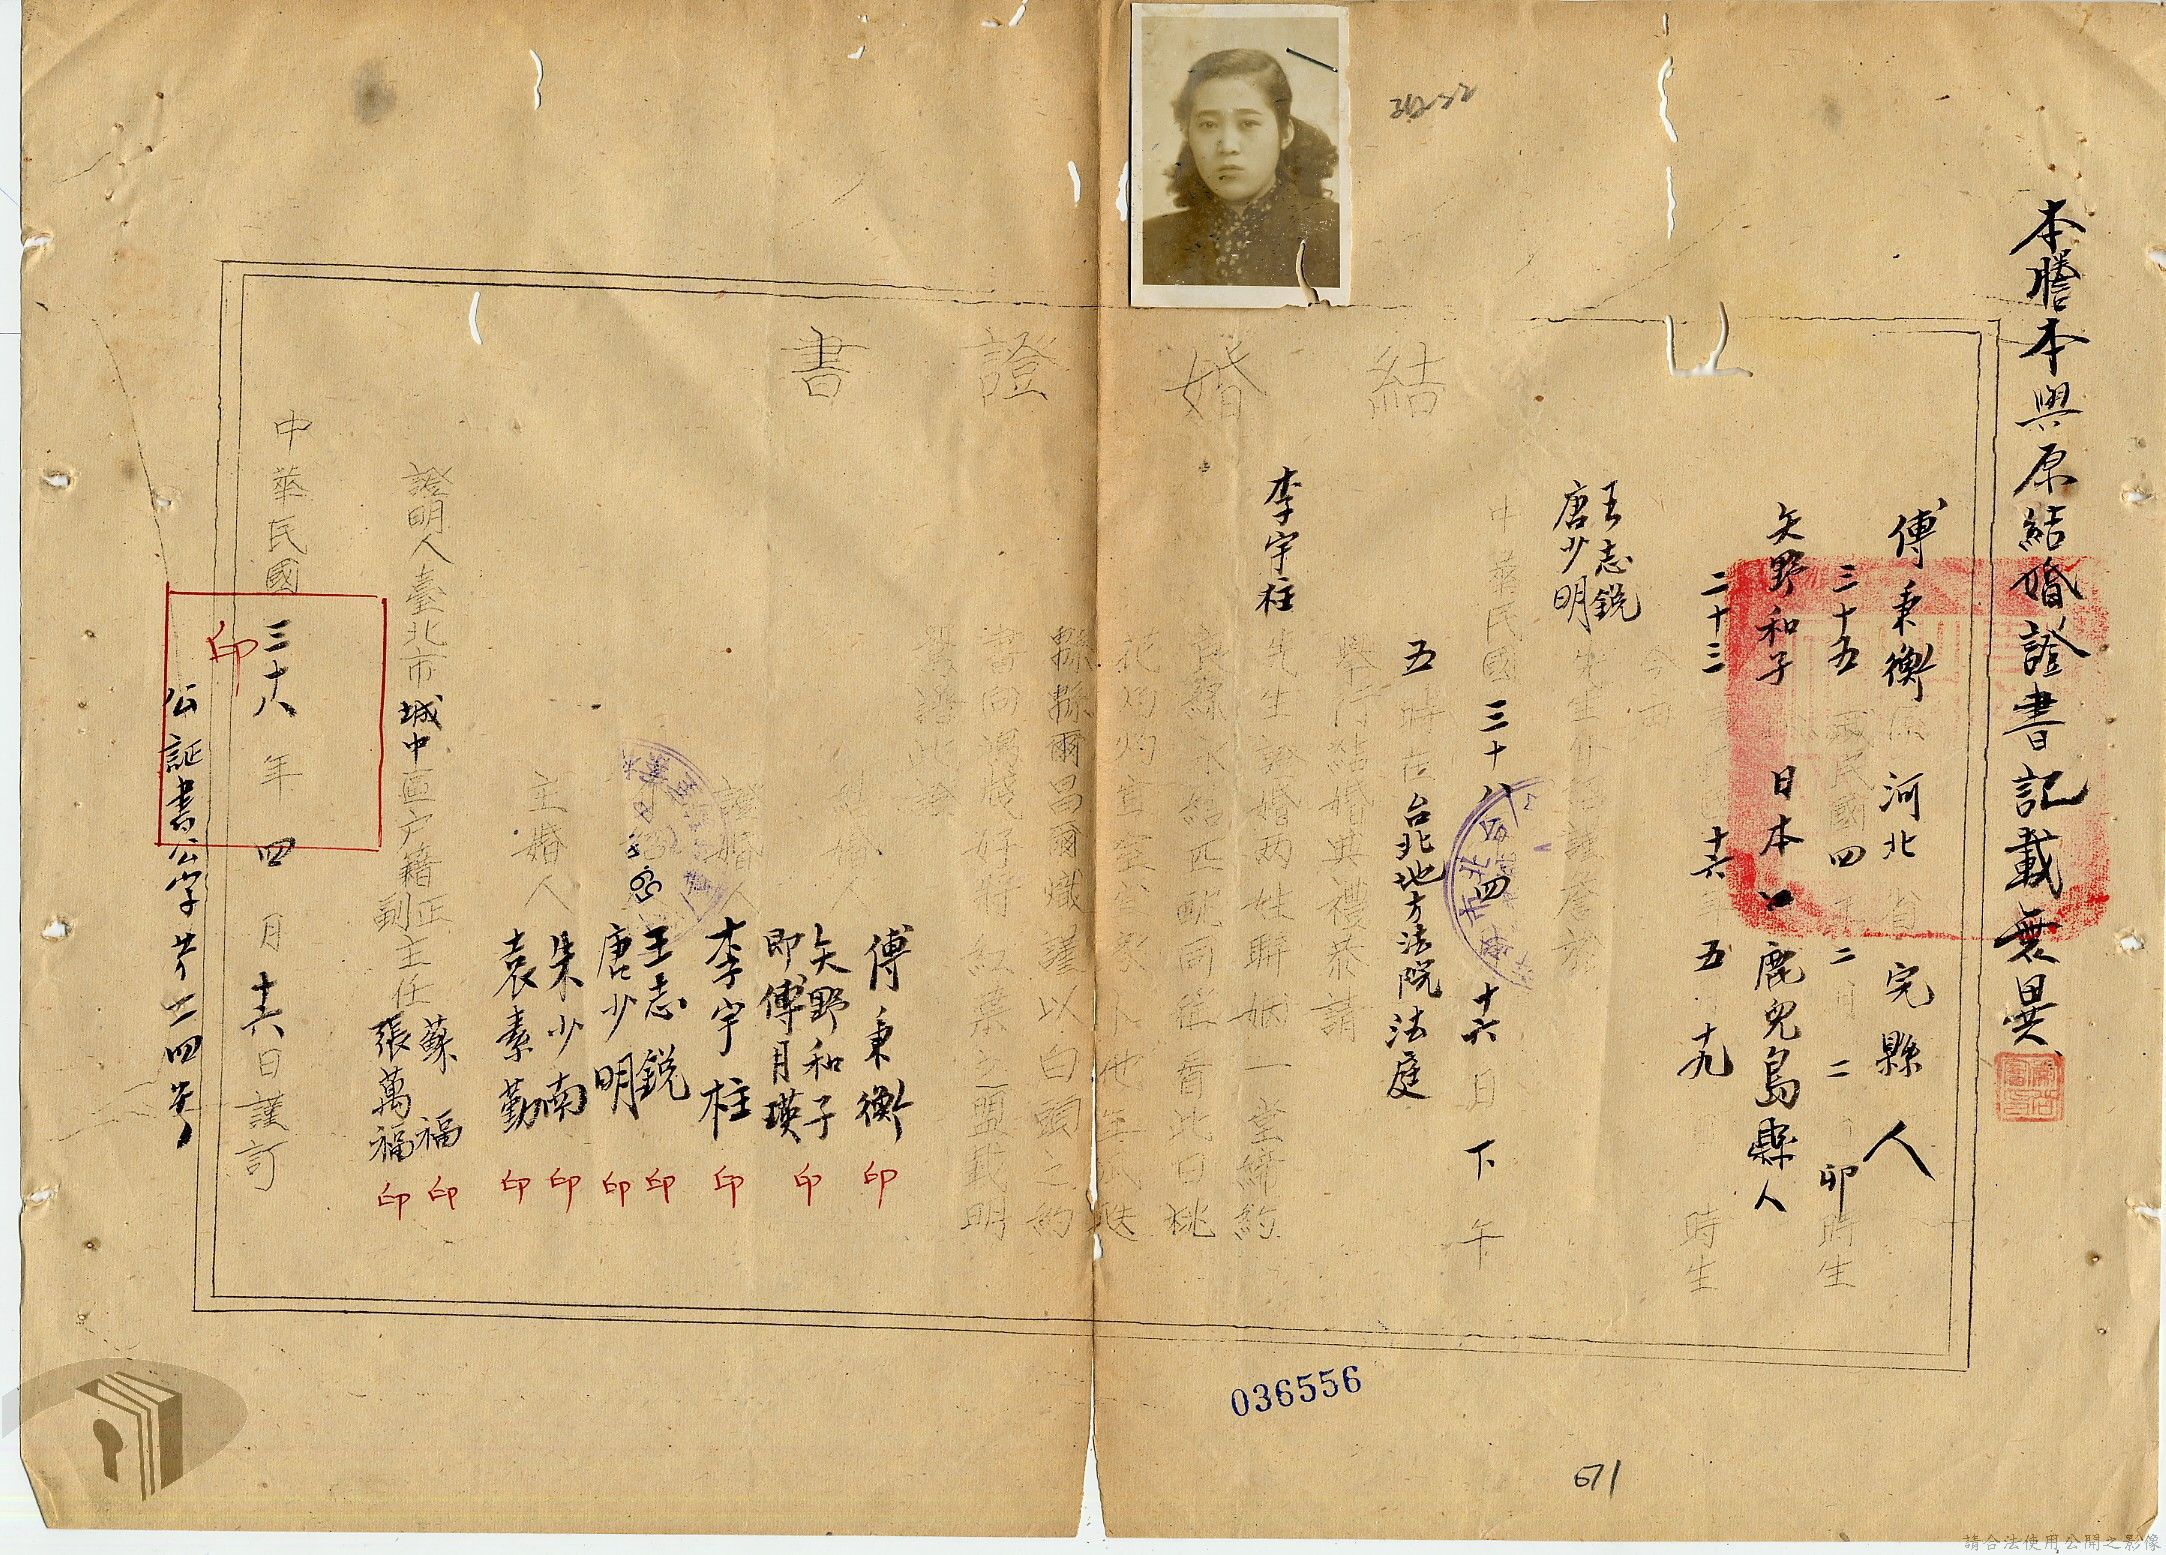 本謄本與原結婚證書記載無異
結婚證書
傅秉衡 河北省完縣人
三十五歲民國四年二月二日卯時生
矢野和子 日本口鹿兒島縣人
二十三歲民國十六年五月十九日 時生
今由
王志銳
唐少明
先生介紹謹詹於
中華民國三十八年四月十六日下午
五時在台北地方法院法庭
舉行結婚典禮恭請
李宇柱先生證婚兩姓聯姻一堂締約
良緣永結匹配同稱看此日桃
花灼灼宜室宜家卜他年瓜瓞
緜緜爾昌爾熾謹以白頭之約
書向鴻牋好將紅葉之盟載明
鴛譜此證
結婚人
傅秉衡 印
矢野和子
即傅月瑛 印
證婚人
李宇柱 印
介紹人
王志銳 印
唐少明 印
主婚人
朱少南 印
袁素勤 印
證明人臺北市城中區户籍正副主任
蘇福 印
張萬福 印
中華民國三十八年四月十六日謹訂
印
公証書公字第二四號
036556
671
請合法使用公開之影像